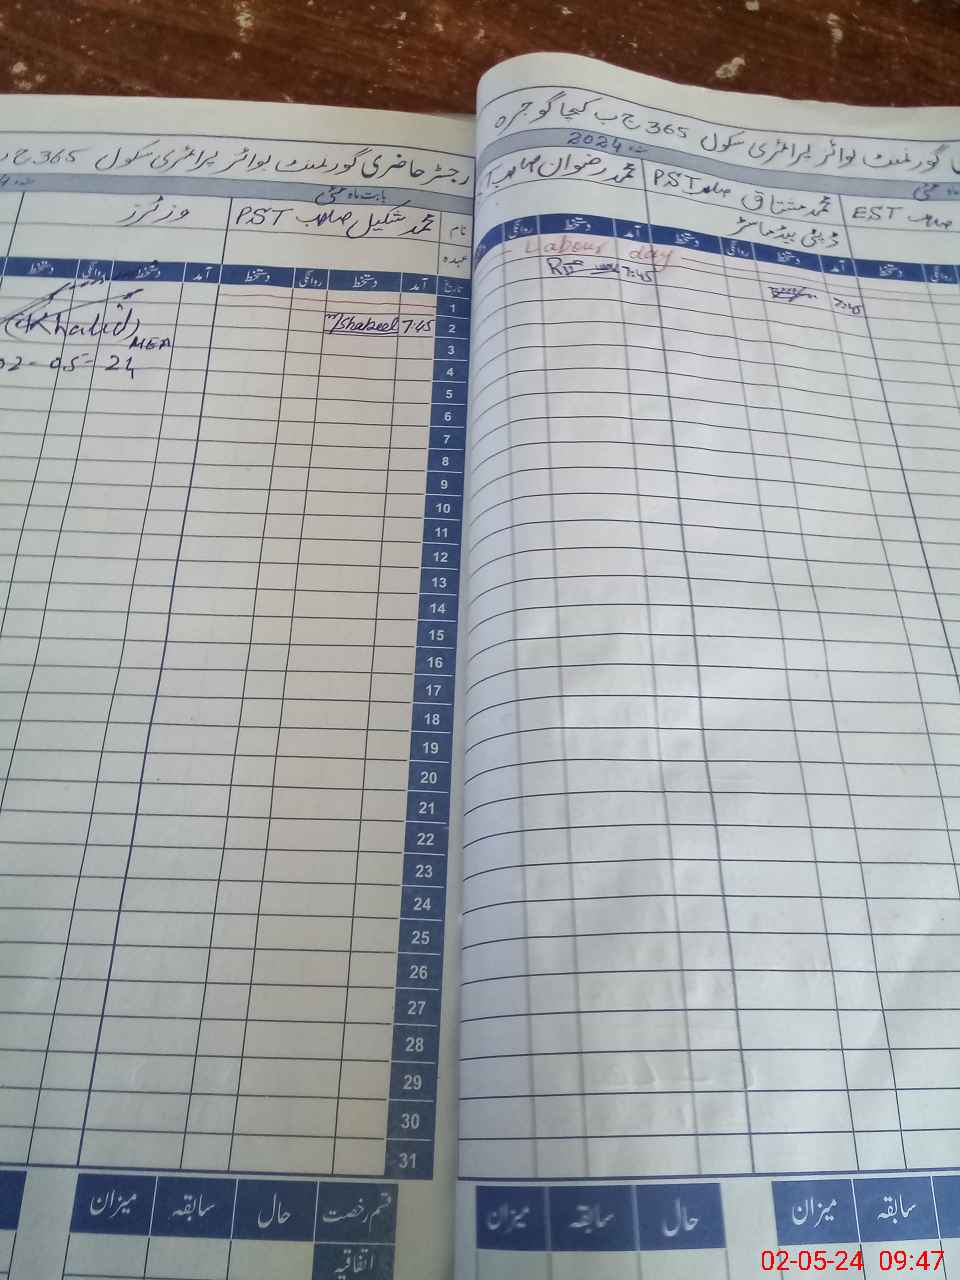 گورنمنٹ بوائز پرائمری سکول 365 ج ب کیچا گوجرہ
2024
محمد رضوان صاحب
محمد مشتاق صاحب PST
صاحب EST
ڈپٹی ہیڈ ماسٹر
روانگی دستخط آمد دستخط روانگی دستخط آمد دستخط روانگی
Labour day
7:45
7:45
رجسٹر حاضری گورنمنٹ بوائز پرائمری سکول 365 ج
بابت ماہ مئی
نام
محمد شکیل صاحب PST
وزٹرز
عہدہ
تاریخ آمد دستخط روانگی دستخط آمد دستخط روانگی دستخط
1
2 7:45 M Shakeel
(Khalid)
MEA
02-05-24
3
4
5
6
7
8
9
10
11
12
13
14
15
16
17
18
19
20
21
22
23
24
25
26
27
28
29
30
31
قسم رخصت حال سابقہ میزان
اتفاقیہ
حال سابقہ میزان
سابقہ میزان
02-05-24 09:47